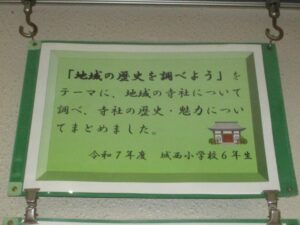 「地域の歴史を調べよう」を
テーマに、地域の寺社について
調べ、寺社の歴史・魅力につい
てまとめました。
令和7年度 城西小学校6年生